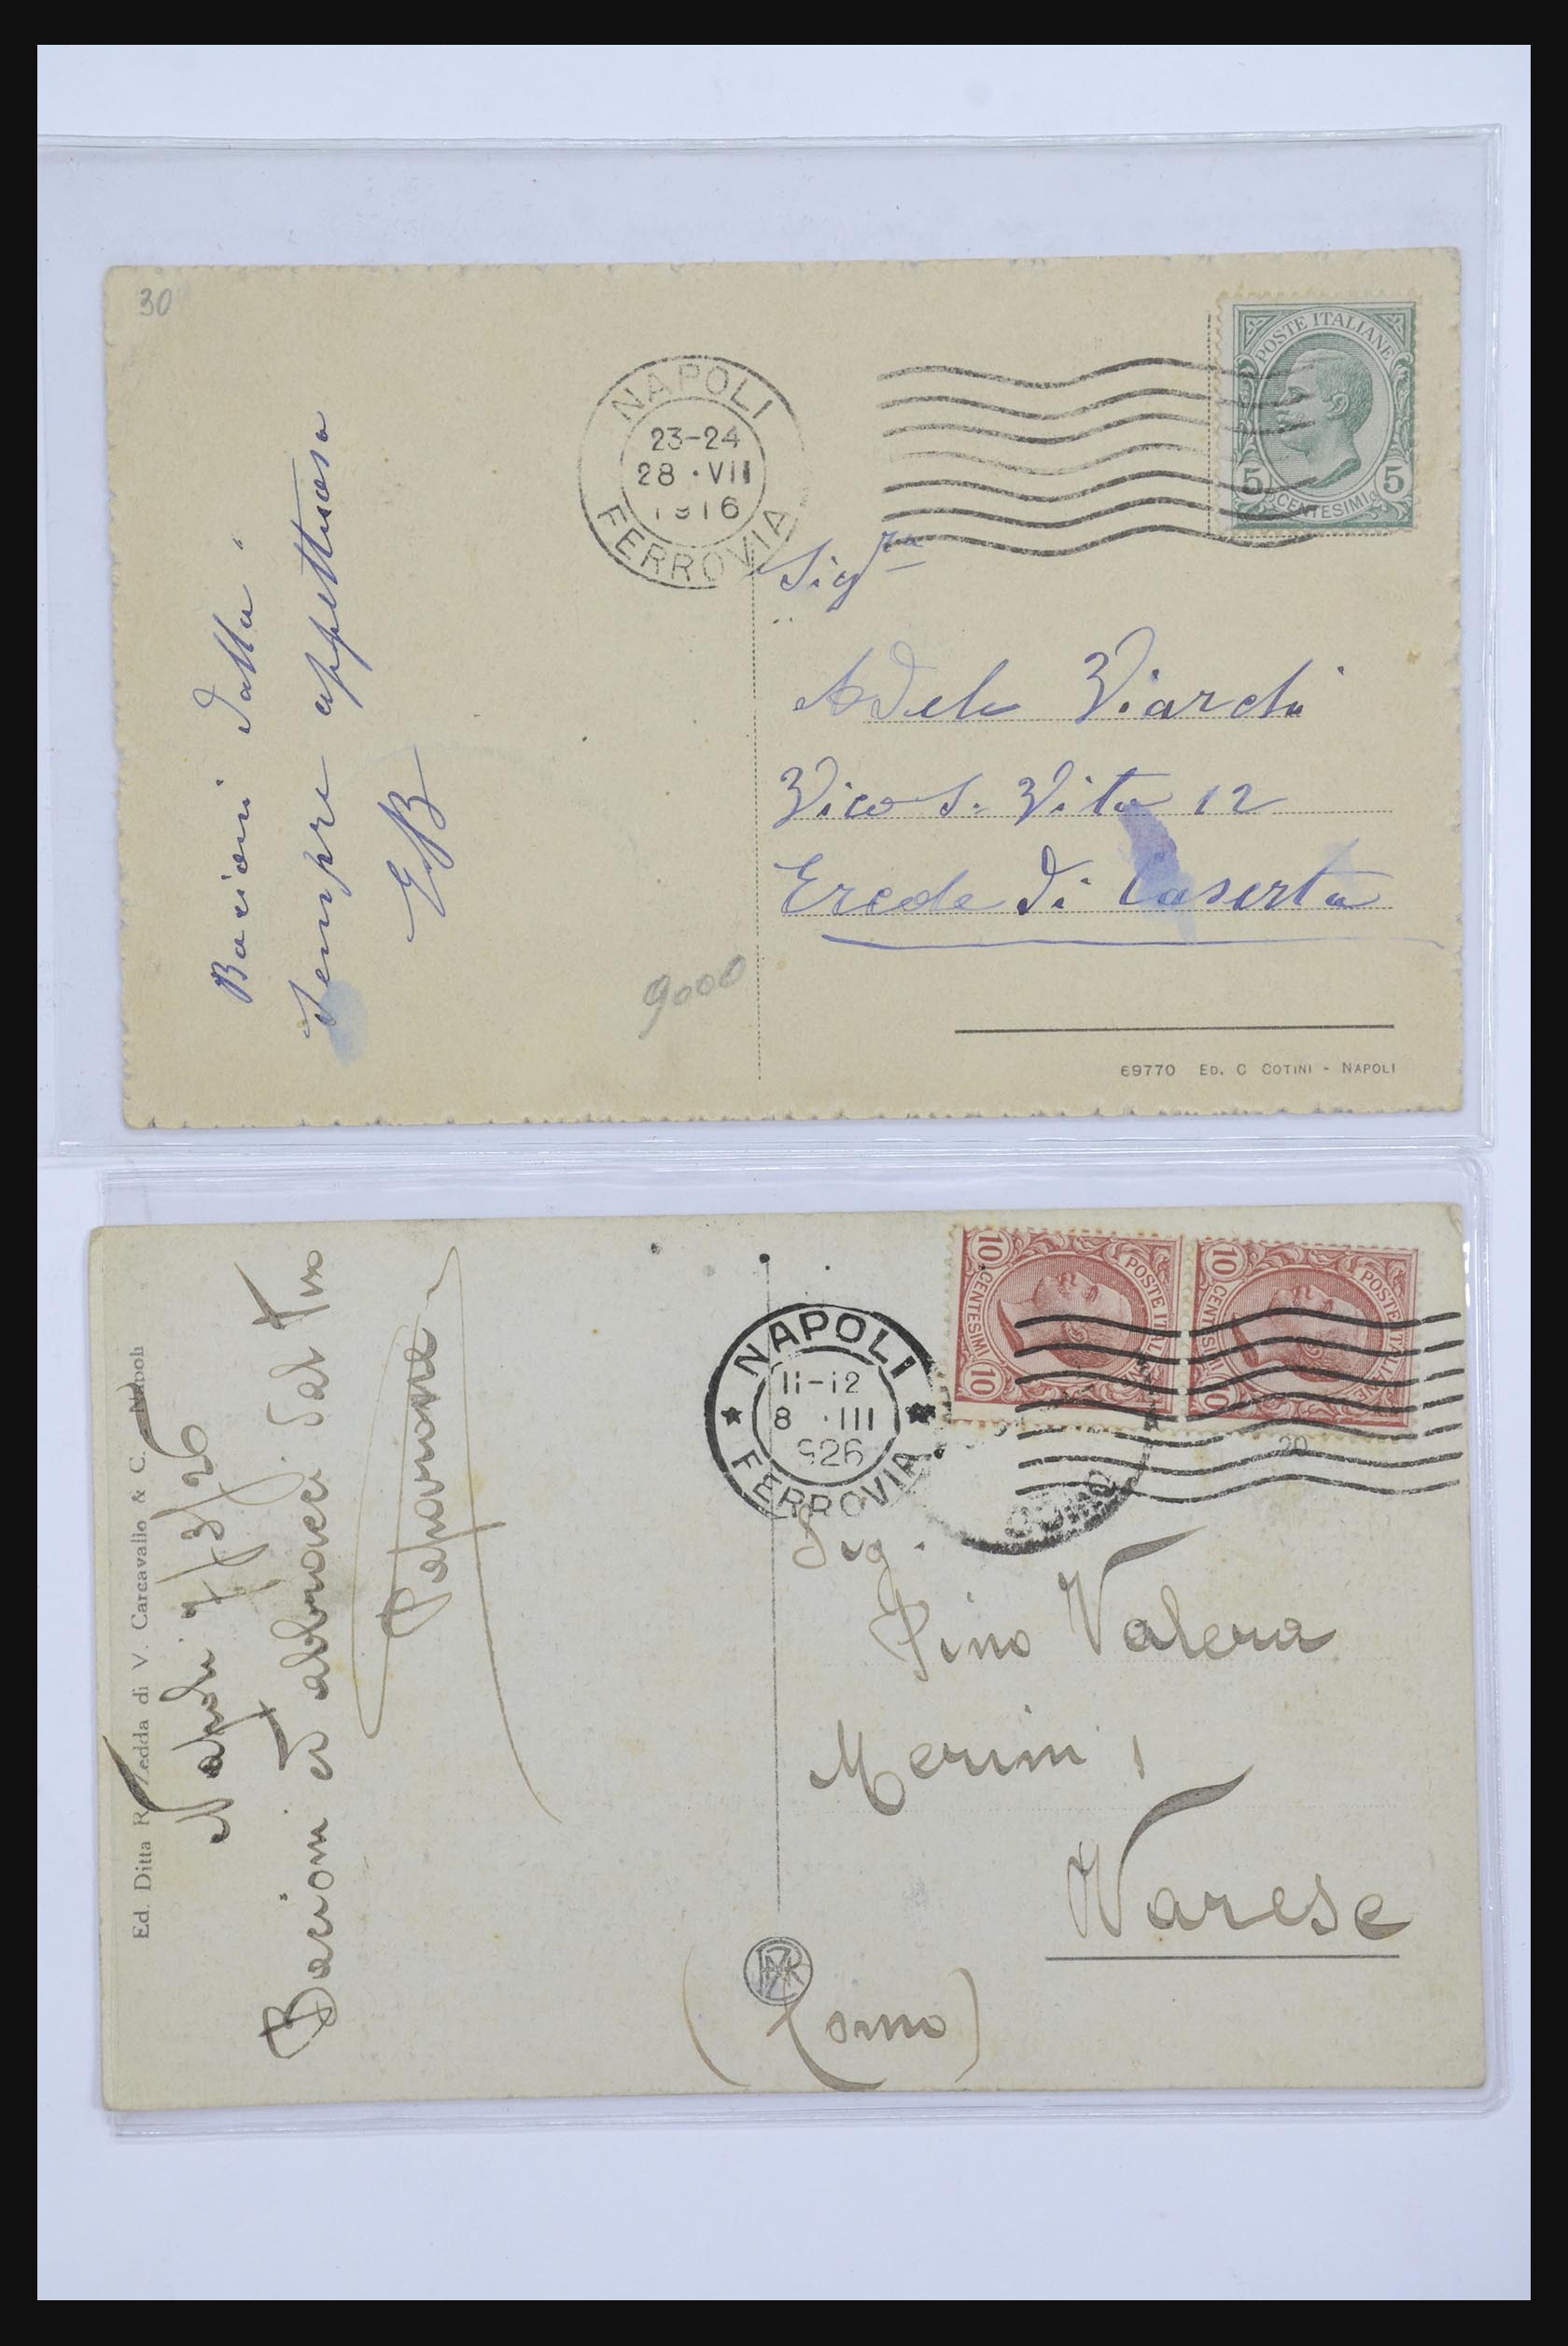 30
NAPOLI
23-24
28 · VII
1916
FERROVIA
POSTE ITALIANE
5 CENTESIMI 5
Bacioni dalla
sempre affettuosa
EB
Sig.ra
Adele Viarchi
Vico S. Vito 12
Ercole di Caserta
9000
69770 ED. C COTINI - NAPOLI
Ed. Ditta R. Zedda di V. Carcavallo & C. Napoli
Napoli 7/3/26
Bacioni ed abbracci dal tuo
NAPOLI
11-12
8 · III
926
FERROVIA
10 CENTESIMI 10
POSTE ITAL
10 CENTESIMI 10
POSTE ITALIANE
20
Sig.
Pino Valera
Merini 1
Varese
(Como)